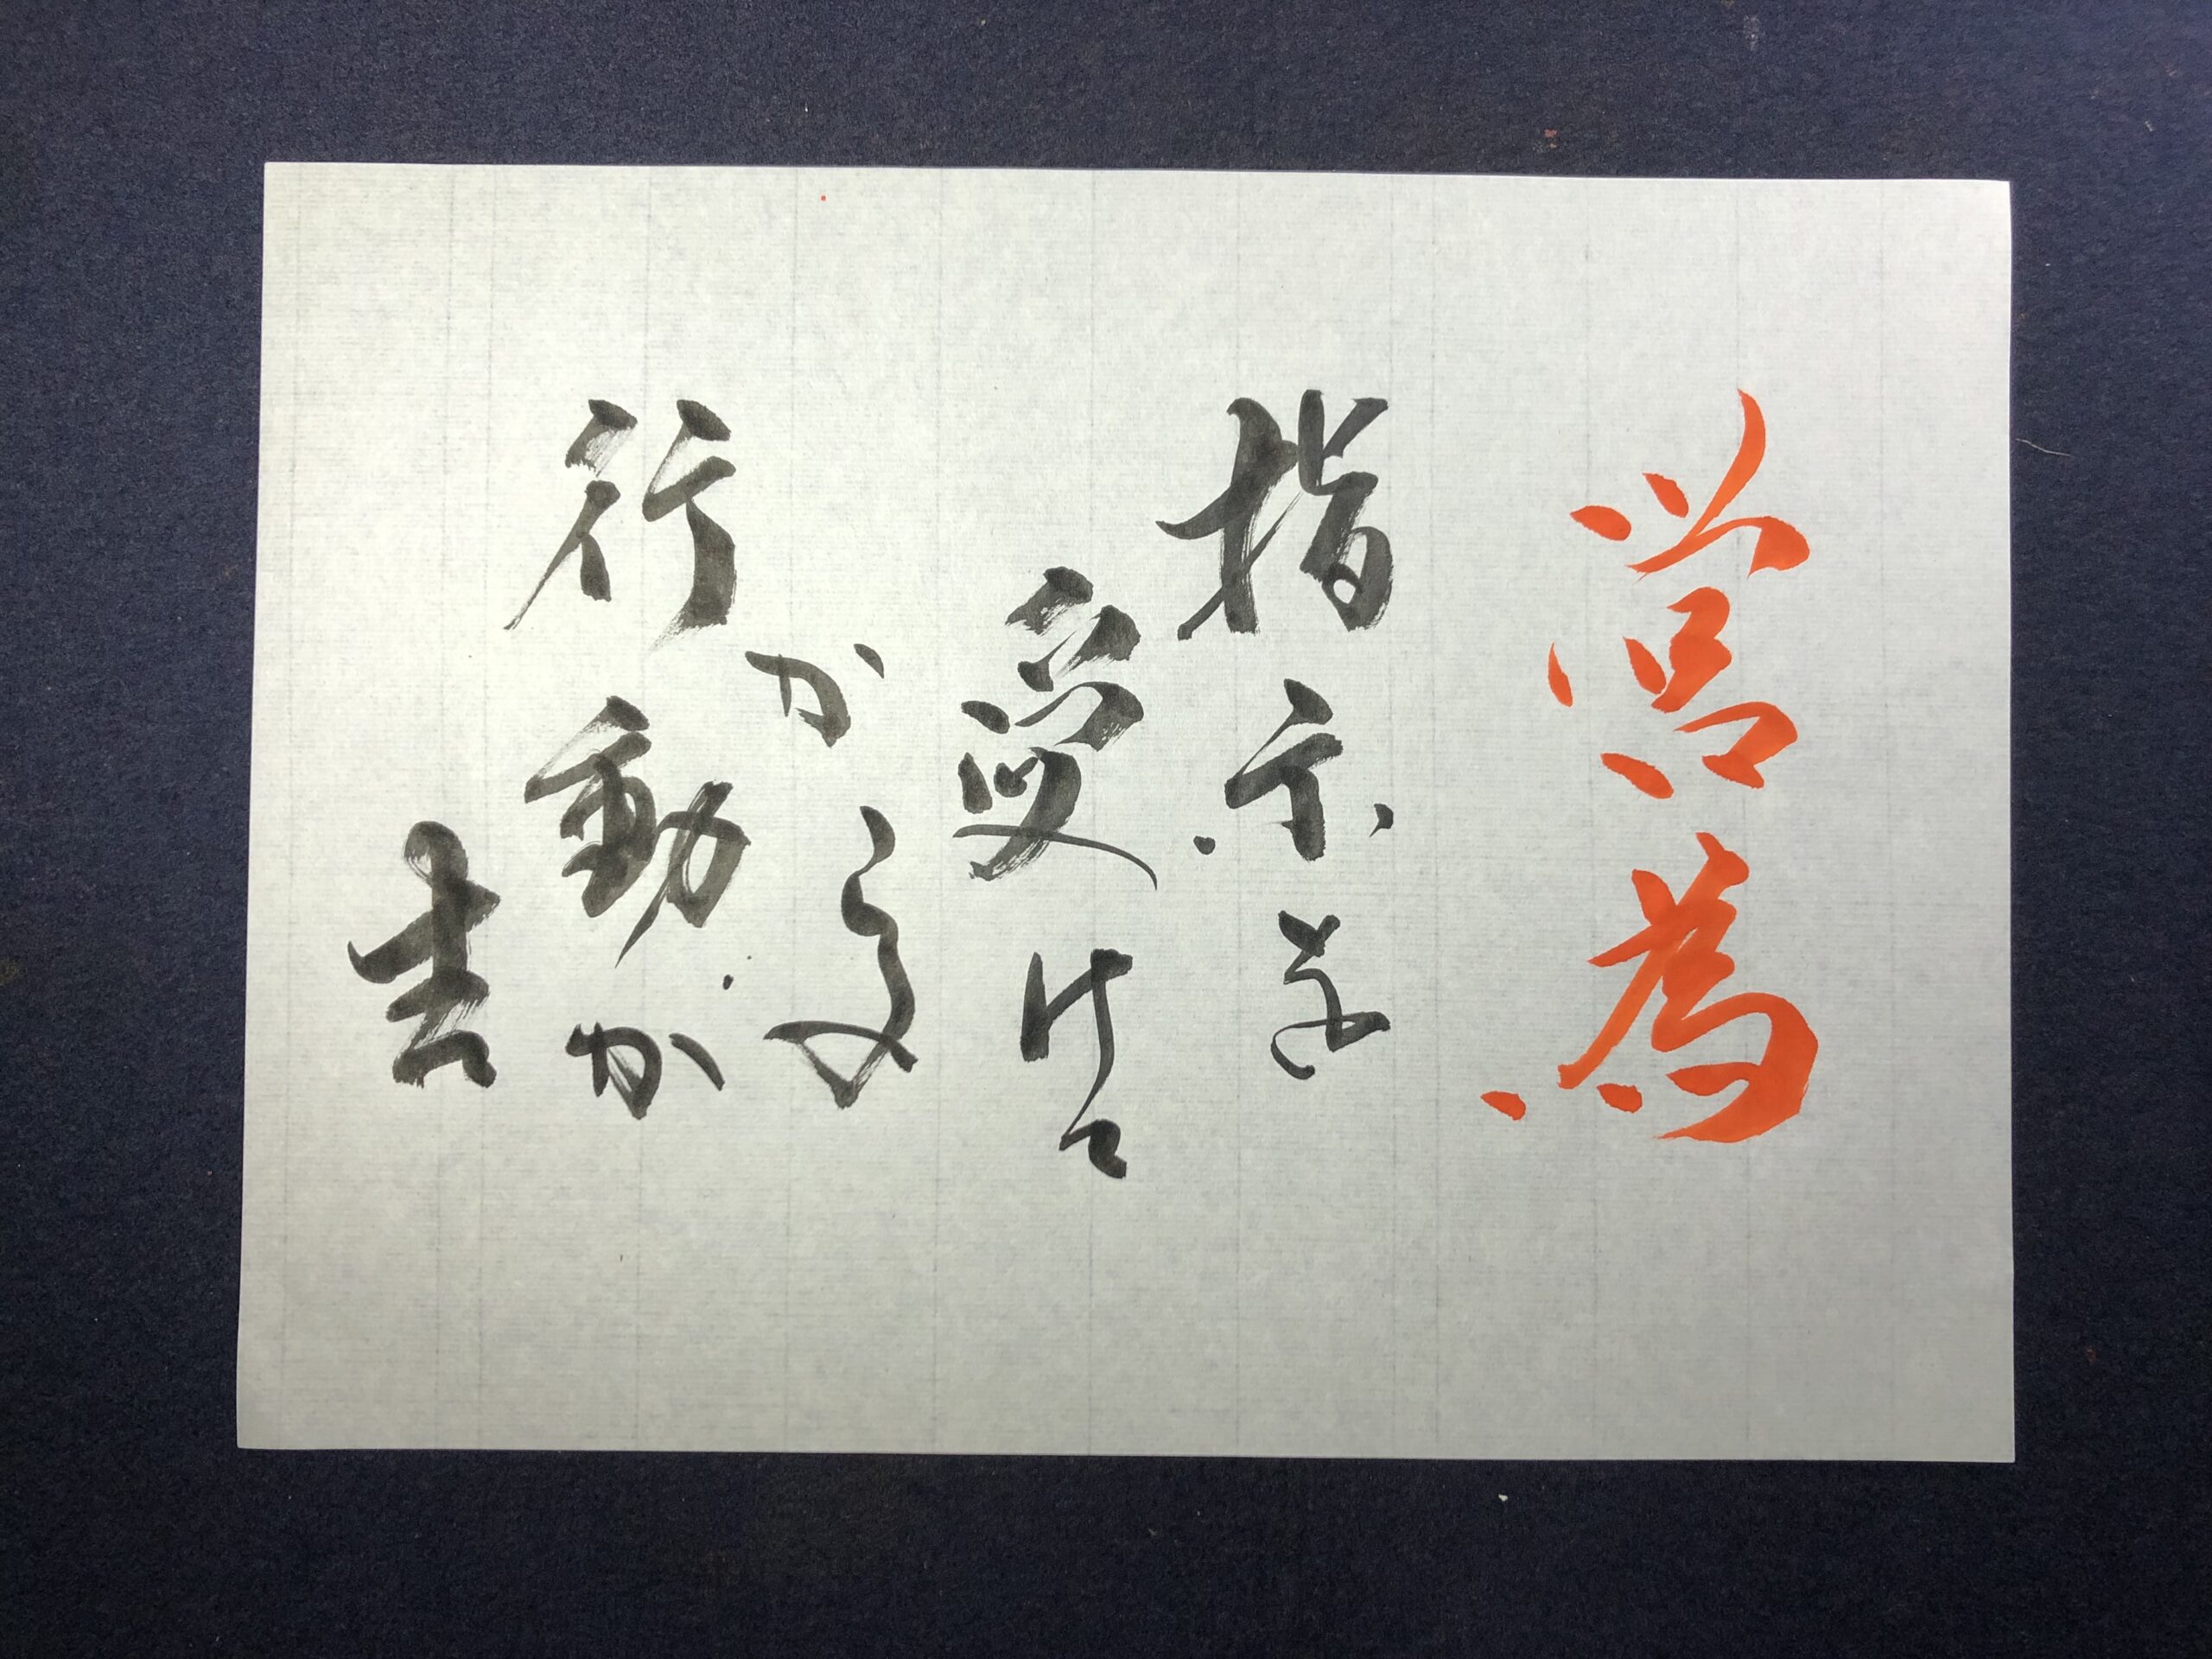 営為
指示を
受けて
からの
行動が
吉